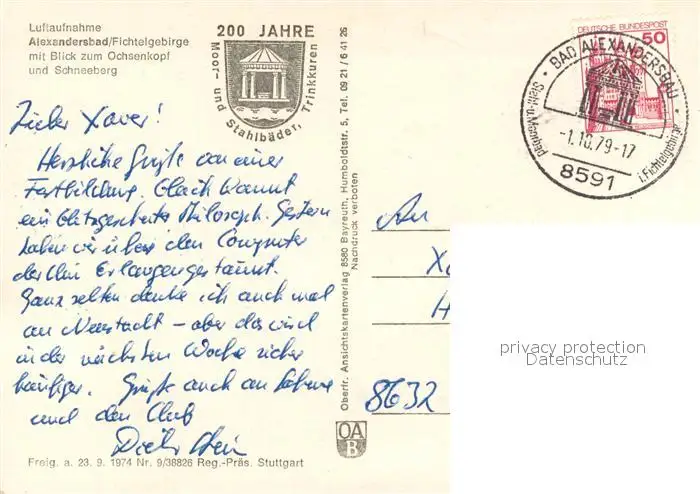 Luftaufnahme
Alexandersbad/Fichtelgebirge
mit Blick zum Ochsenkopf
und Schneeberg
200 JAHRE
Moor- und Stahlbäder, Trinkkuren
DEUTSCHE BUNDESPOST
50
BAD ALEXANDERSBAD
Stahl-u. Moorbad
i. Fichtelgebirge
-1.10.79-17
8591
Lieber Xaver!
Herzliche Grüße von einer
Fortbildung. Gleich kommt
ein blitzgescheiter Philosoph. Gestern
haben wir über den Computer
der Uni Erlangen gestaunt.
Ganz selten denke ich auch mal
an Neustadt – aber das wird
in der nächsten Woche sicher
häufiger. Grüße auch an
und den Club
Dieter
An
X
H
8632
Oberfr. Ansichtskartenverlag 8580 Bayreuth, Humboldtstr. 5, Tel. 09 21 / 6 41 26
Nachdruck verboten
OA
B
Freig. a. 23. 9. 1974 Nr. 9/38826 Reg.-Präs. Stuttgart
privacy protection
Datenschutz